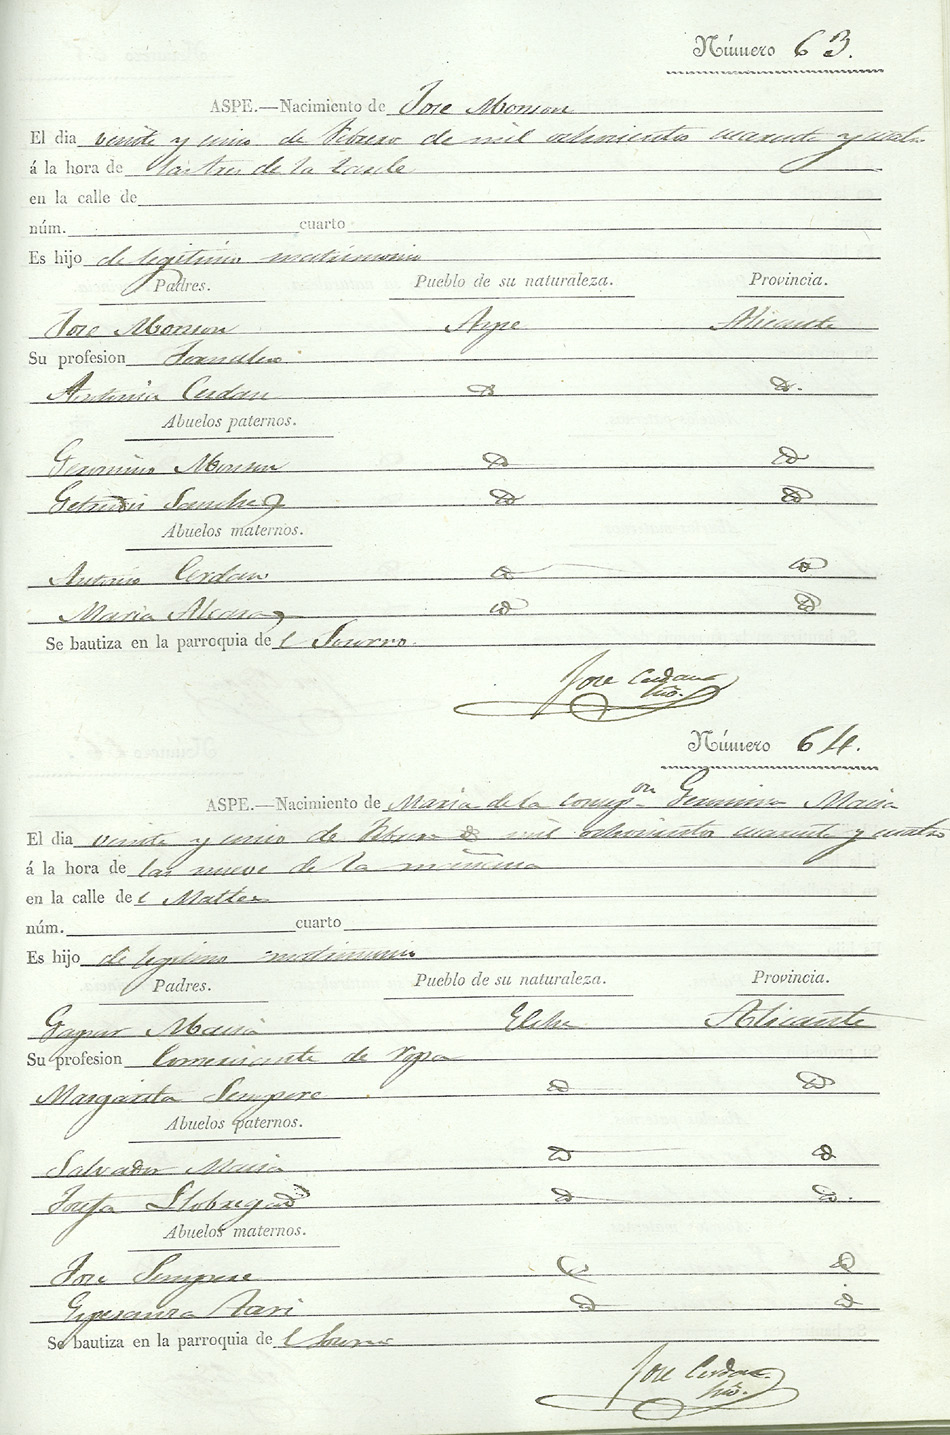 Número 63.
ASPE.—Nacimiento de Jose Monson
El dia veinte y cinco de Febrero de mil ochocientos cuarenta y cuatro
á la hora de las tres de la tarde
en la calle de
núm. cuarto
Es hijo de legitimo matrimonio
Padres. Pueblo de su naturaleza. Provincia.
Jose Monson Aspe Alicante
Su profesion Jornalero
Antonia Cerdan Id Id.
Abuelos paternos.
Geronimo Monson Id Id
Getrudis Sanchez Id Id
Abuelos maternos.
Antonio Cerdan Id Id
Maria Alcaraz Id Id
Se bautiza en la parroquia de l Socorro.
Jose Cerdan
Srio.
Número 64.
ASPE.—Nacimiento de Maria de la Concepon Geronima Macia
El dia veinte y cinco de Febrero de mil ochocientos cuarenta y cuatro
á la hora de las nueve de la mañana
en la calle de l
núm. cuarto
Es hijo de legitimo matrimonio
Padres. Pueblo de su naturaleza. Provincia.
Gaspar Macia Elche Alicante
Su profesion Comerciante de Ropa
Margarita Sempere Id Id
Abuelos paternos.
Salvador Macia Id Id
Josefa Llobregad Id Id.
Abuelos maternos.
Jose Sempere Id Id
Esperanza Id Id
Se bautiza en la parroquia de l Socorro
Jose Cerdan.
Srio.